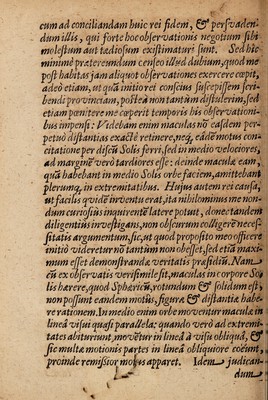 eum ad conciliandam huic rei fidem, & persvaden-
dum illis, qui forte hoc observationis negotium sibi
molestum aut tædiosum existimaturi sunt. Sed hîc
minimè prætereundum censeo illud dubium, quod me
post habitas jam aliquot observationes exercere cœpit,
adeò etiam, ut quâ initio rei conscius suscepissem scri-
bendi provinciam, posteà non tantùm distulerim, sed
etiam pœnitere me cœperit temporis his observationi-
bus impensi: Videbam enim maculas nõ easdem per-
petuò distantias exactè retinere, neq́; eâdē motus con-
citatione per discũ Solis ferri, sed in medio velociores,
ad marginē verò tardiores esse: deinde maculæ eam,
quâ habebant in medio Solis orbe faciem, amittebant
plerumq́; in extremitatibus. Hujus autem rei causa,
ut facilis quidē inventu erat, ita nihilominus me non-
dum curiosiùs inquirentē latere potuit, donec tandem
diligentiùs investigans, non obscurum colligerē neces-
sitatis argumentum, sic, ut quod proposito meo officere
initiò videretur nō tantùm non obesset, sed etiã maxi-
mum esset demonstrandæ veritatis præsidiũ. Nam
cũ ex observatis verisimile sit, maculas in corpore So
lis hærere, quod Sphæricũ, rotundum & solidum est,
non possunt eandem motûs, figuræ & distantiæ habe-
re rationem. In medio enim orbe moventur maculæ in
lineâ visui quasi parallela; quando verò ad extremi-
tates abituriunt, movētur in lineâ à visu obliquâ, &
sic multæ motionis partes in lineâ obliquiore coëunt,
proinde remissior motus apparet. Idem judican-
dum